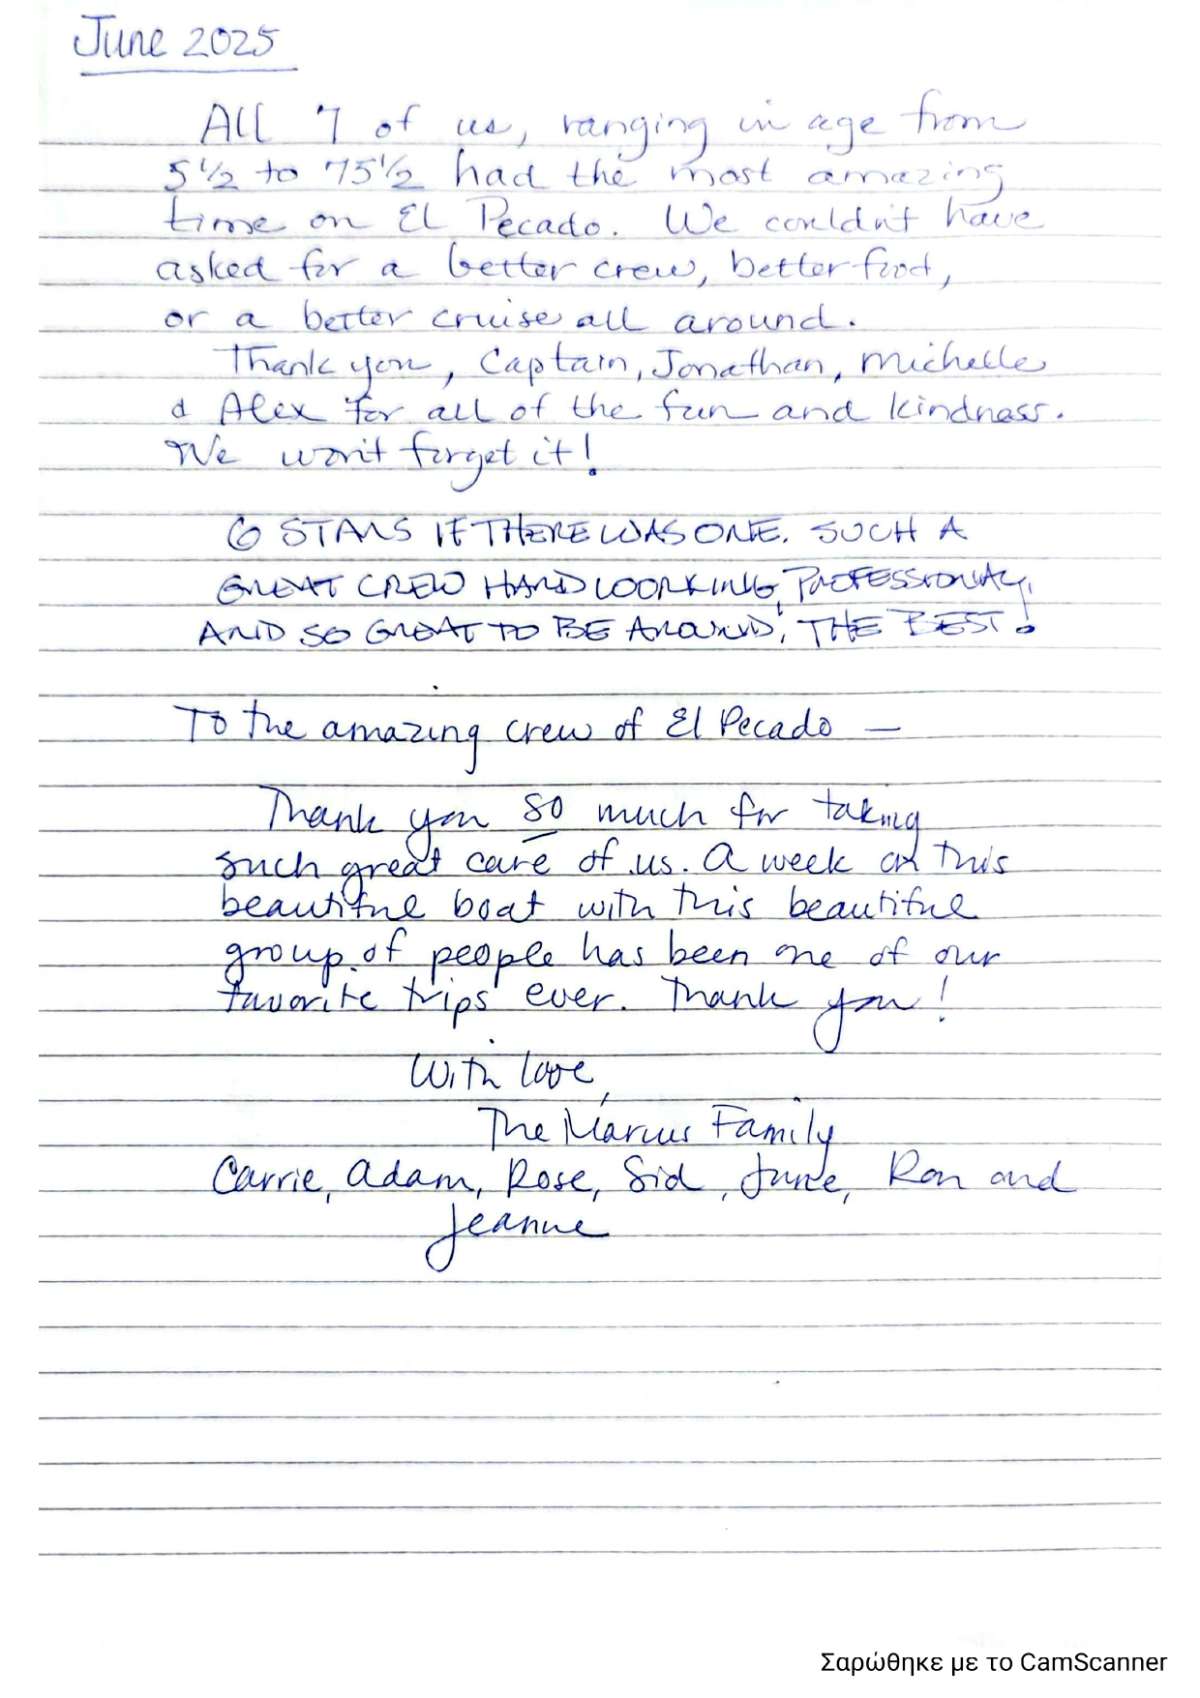 June 2025
All 7 of us, ranging in age from
5 1/2 to 75 1/2 had the most amazing
time on El Pecado. We couldn't have
asked for a better crew, better food,
or a better cruise all around.
Thank you, Captain, Jonathan, Michelle
& Alex for all of the fun and kindness.
We won't forget it!
6 STARS IF THERE WAS ONE. SUCH A
GREAT CREW HARD WORKING, PROFESSIONAL,
AND SO GREAT TO BE AROUND! THE BEST!
To the amazing crew of El Pecado —
Thank you so much for taking
such great care of us. A week on this
beautiful boat with this beautiful
group of people has been one of our
favorite trips ever. Thank you!
With love,
The Marcus Family
Carrie, Adam, Rose, Sid, June, Ron and
Jeanne
Σαρώθηκε με το CamScanner